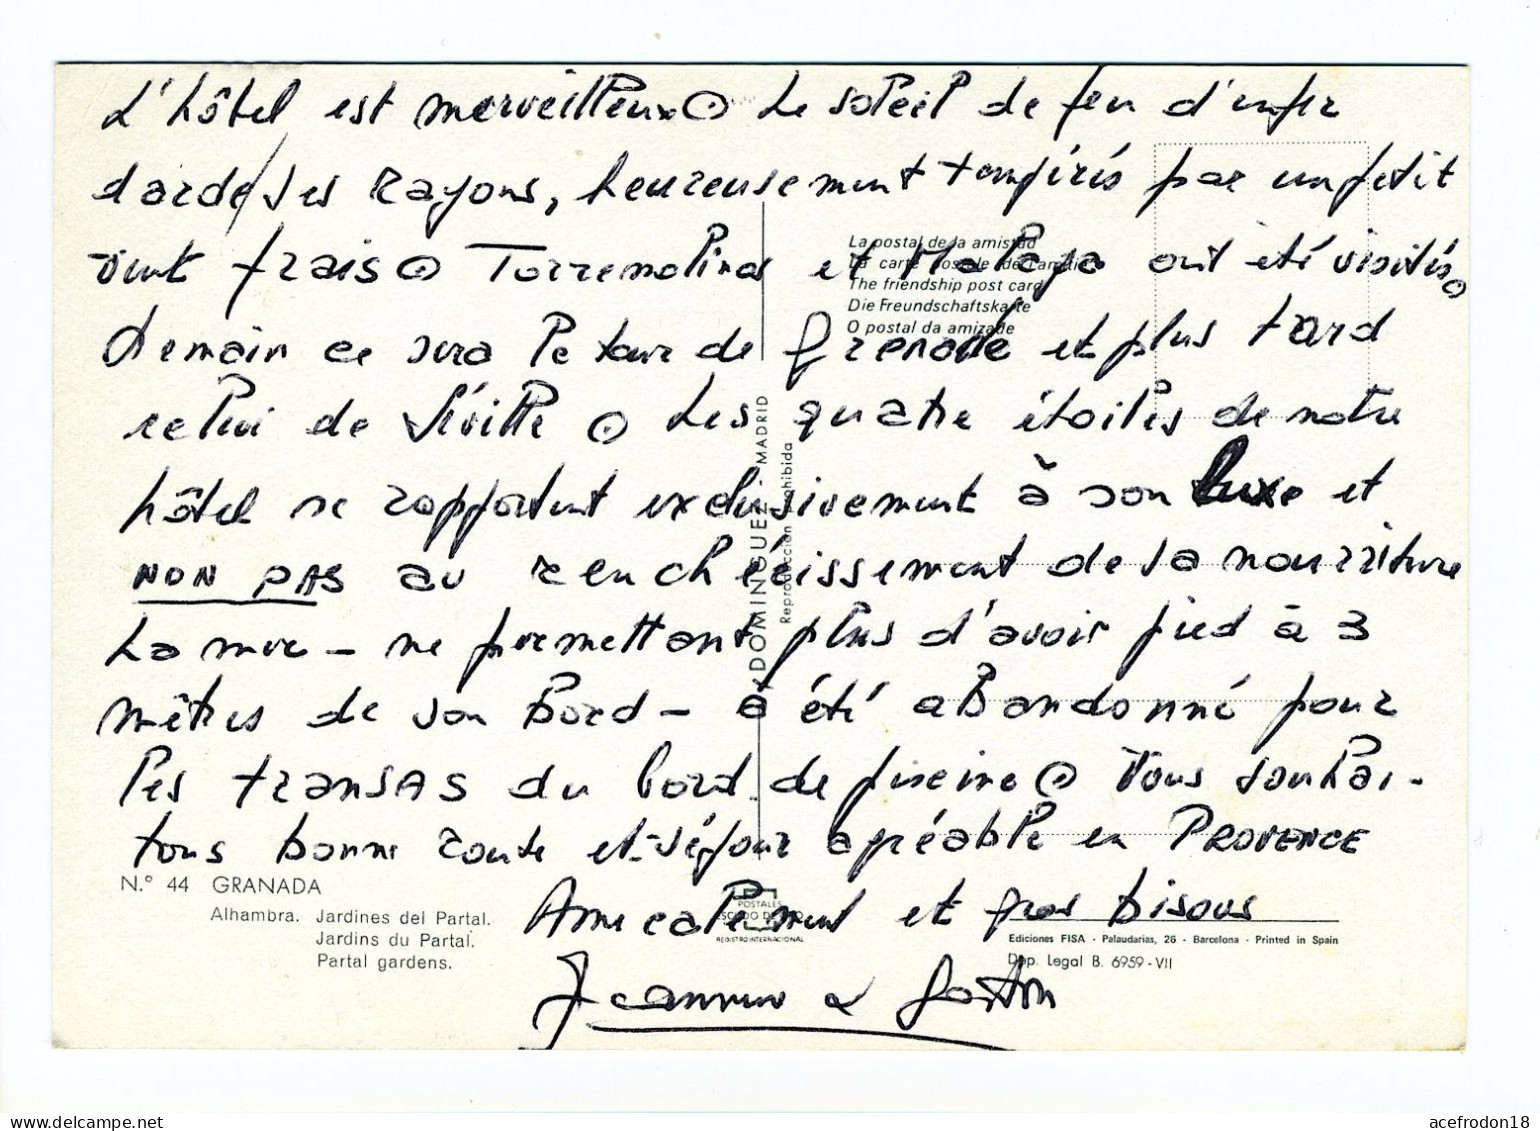 L'hôtel est merveilleux. Le soleil de feu d'enfer
darde ses rayons, heureusement tempérés par un petit
vent frais. Torremolinos et Malaga ont été visités.
Demain ce sera le tour de Grenade et plus tard
celui de Séville. Les quatre étoiles de notre
hôtel se rapportent exclusivement à son luxe et
NON PAS au renchérissement de la nourriture
La mer - ne permettant plus d'avoir pied à 3
mètres de son bord - a été abandonné pour
les transas du bord de piscine. Vous souhai-
tons bonne route et séjour agréable en PROVENCE
Amicalement et gros bisous
Jeannine & Gaston
La postal de la amistad
La carte postale de l'amitié
The friendship post card
Die Freundschaftskarte
O postal da amizade
DOMINGUEZ - MADRID
Reproducción prohibida
N.º 44 GRANADA
Alhambra. Jardines del Partal.
Jardins du Partal.
Partal gardens.
POSTALES
ESCUDO DE ORO
REGISTRO INTERNACIONAL
Ediciones FISA - Palaudarias, 26 - Barcelona - Printed in Spain
Dep. Legal B. 6959-VII
acefrodon18